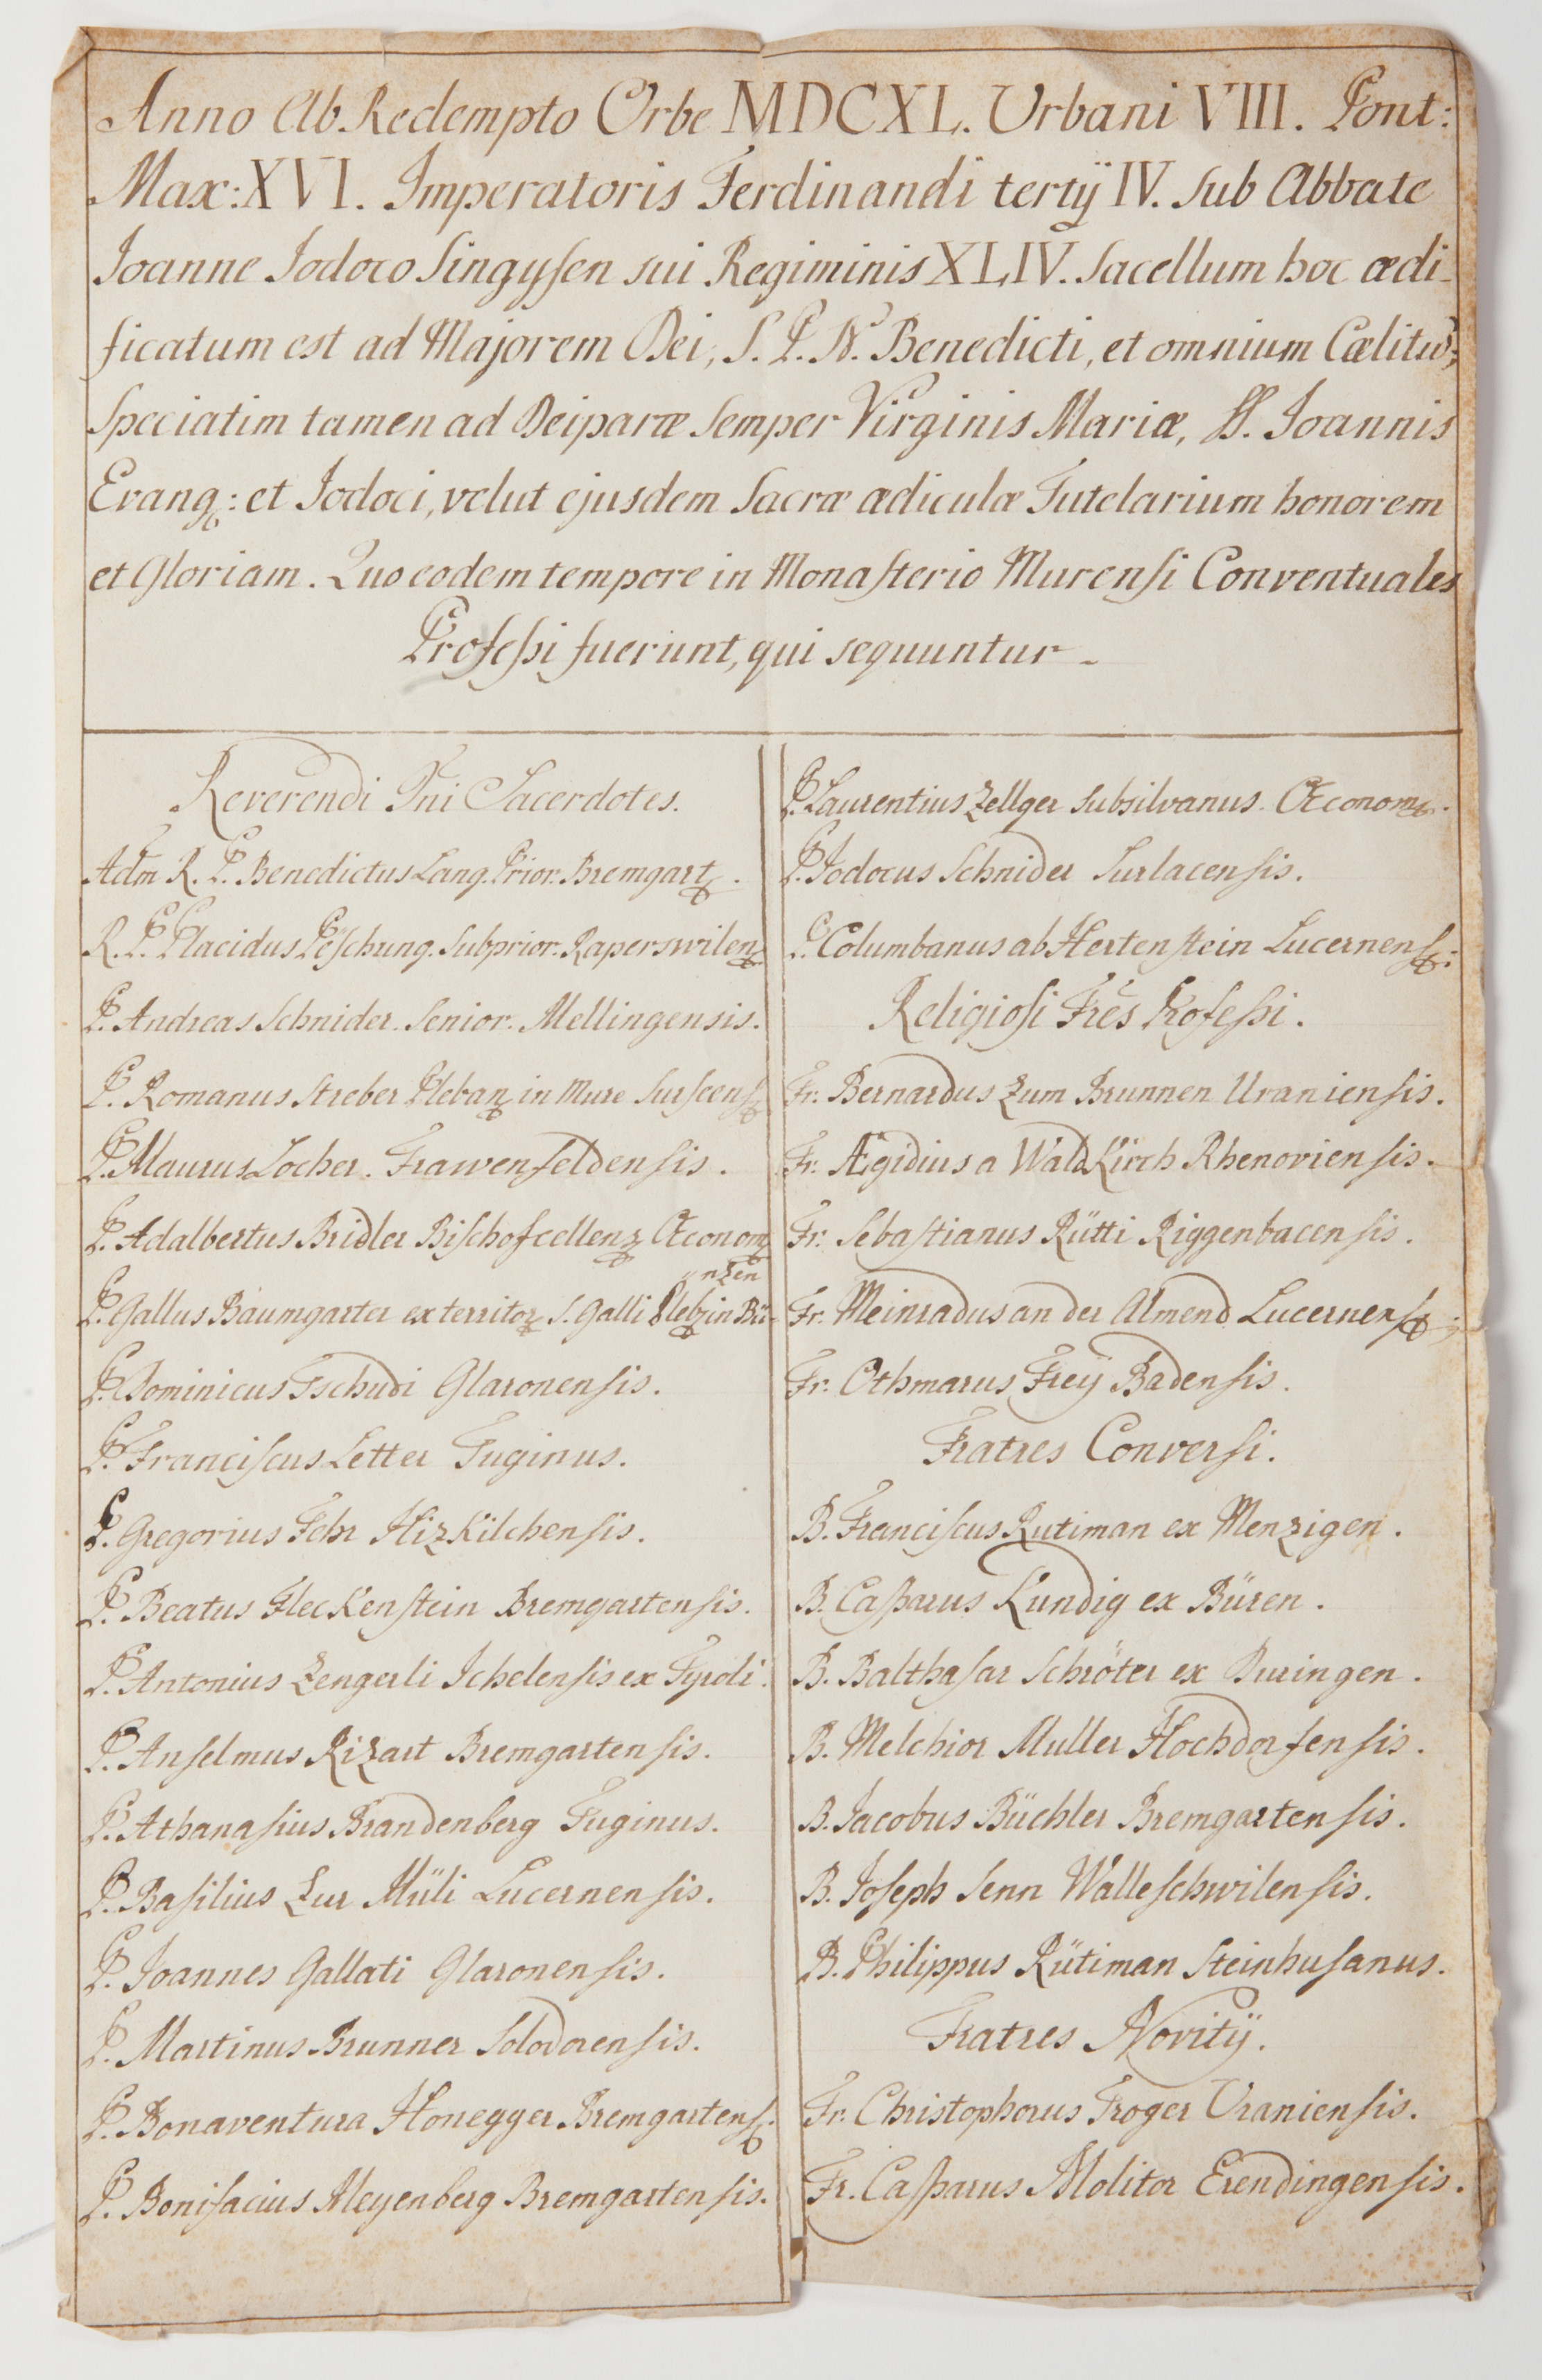 Anno Ab Redempto Orbe MDCXL. Urbani VIII. Pont:
Max: XVI. Imperatoris Ferdinandi tertÿ IV. sub Abbate
Joanne Jodoco Singysen sui Regiminis XLIV. Sacellum hoc ædi-
ficatum est ad Majorem Dei, S. P. N. Benedicti, et omnium Cælitũ;
Speciatim tamen ad Deiparæ semper Virginis Mariæ, SS. Joannis
Evang: et Jodoci, velut ejusdem sacræ ædiculæ Tutelarium honorem
et Gloriam. Quo eodem tempore in Monasterio Murensi Conventuales
Professi fuerunt, qui sequuntur
Reverendi Dni Sacerdotes.
Adm R. P. Benedictus Lang. Prior. Bremgart.
R. P. Placidus Peschung. Subprior. Raperswilens
P. Andreas Schnider. Senior. Mellingensis.
P. Romanus Streber Pleban in Mure Surseens
P. Maurus Locher. Frawenfeldensis.
P. Adalbertus Bridler Bischofcellens Œconom
nzen
P. Gallus Baumgarter ex territor S. Galli Pleb in Bü-
P. Dominicus Tschudi Glaronensis.
P. Franciscus Letter Tuginus.
P. Gregorius Fehr Hizkilchensis.
P. Beatus Fleckenstein Bremgartensis.
P. Antonius Zengerli Ichelensis ex Tyroli.
P. Anselmus Rizart Bremgartensis.
P. Athanasius Brandenberg Tuginus.
P. Basilius Zur Müli Lucernensis.
P. Joannes Gallati Glaronensis.
P. Martinus Brunner Solodorensis.
P. Bonaventura Honegger Bremgartens.
P. Bonifacius Meyenberg Bremgartensis.
P. Laurentius Zellger Subsilvanus. Œconom.
P. Jodocus Schnider Surlacensis.
P. Columbanus ab Hertenstein Lucernens:
Religiosi Frẽs Professi.
Fr. Bernardus Zum Brunnen Uraniensis.
Fr. Ægidius a WaldKirch Rhenoviensis.
Fr. Sebastianus Rütti Riggenbacensis.
Fr. Meinradus an der Almend Lucernens
Fr. Othmarus Freÿ Badensis.
Fratres Conversi.
B. Franciscus Rutiman ex Menzigen.
B. Casparus Kundig ex Büren.
B. Balthasar Schröter ex Buringen.
B. Melchior Muller Hochdorfensis.
B. Jacobus Büchler Bremgartensis.
B. Joseph Senn Walleschwilensis.
B. Philippus Rütiman Steinhusanus.
Fratres Novitÿ.
Fr. Christophorus Troger Uraniensis.
Fr. Casparus Molitor Erendingensis.